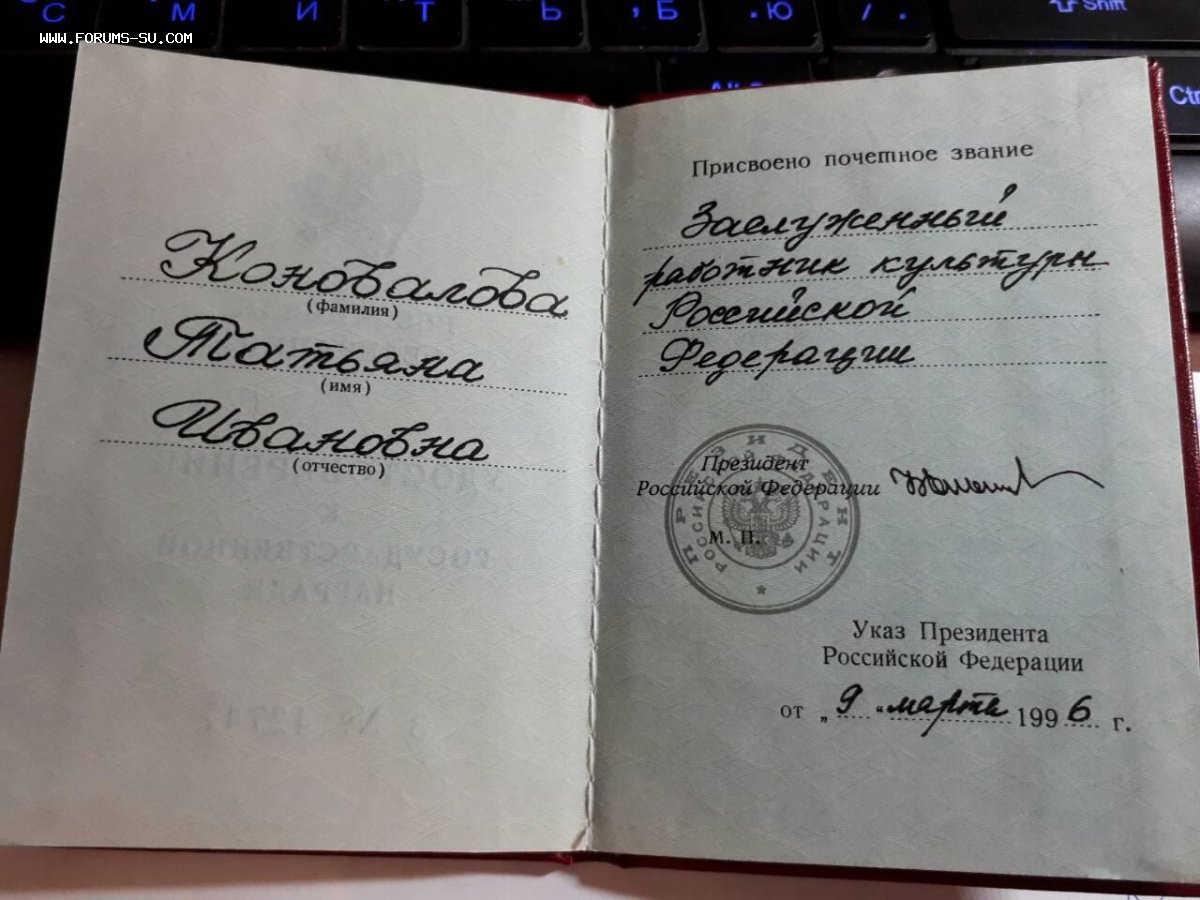 С М И Т Ь , Б . Ю / .
Shift
WWW.FORUMS-SU.COM
Alt
Ctr
Коновалова
(фамилия)
Татьяна
(имя)
Ивановна
(отчество)
Присвоено почетное звание
Заслуженный
работник культуры
Российской
Федерации
ПРЕЗИДЕНТ
РОССИЙСКОЙ ФЕДЕРАЦИИ
Президент
Российской Федерации
М. П.
Указ Президента
Российской Федерации
от „ 9 “ марта 1996 г.